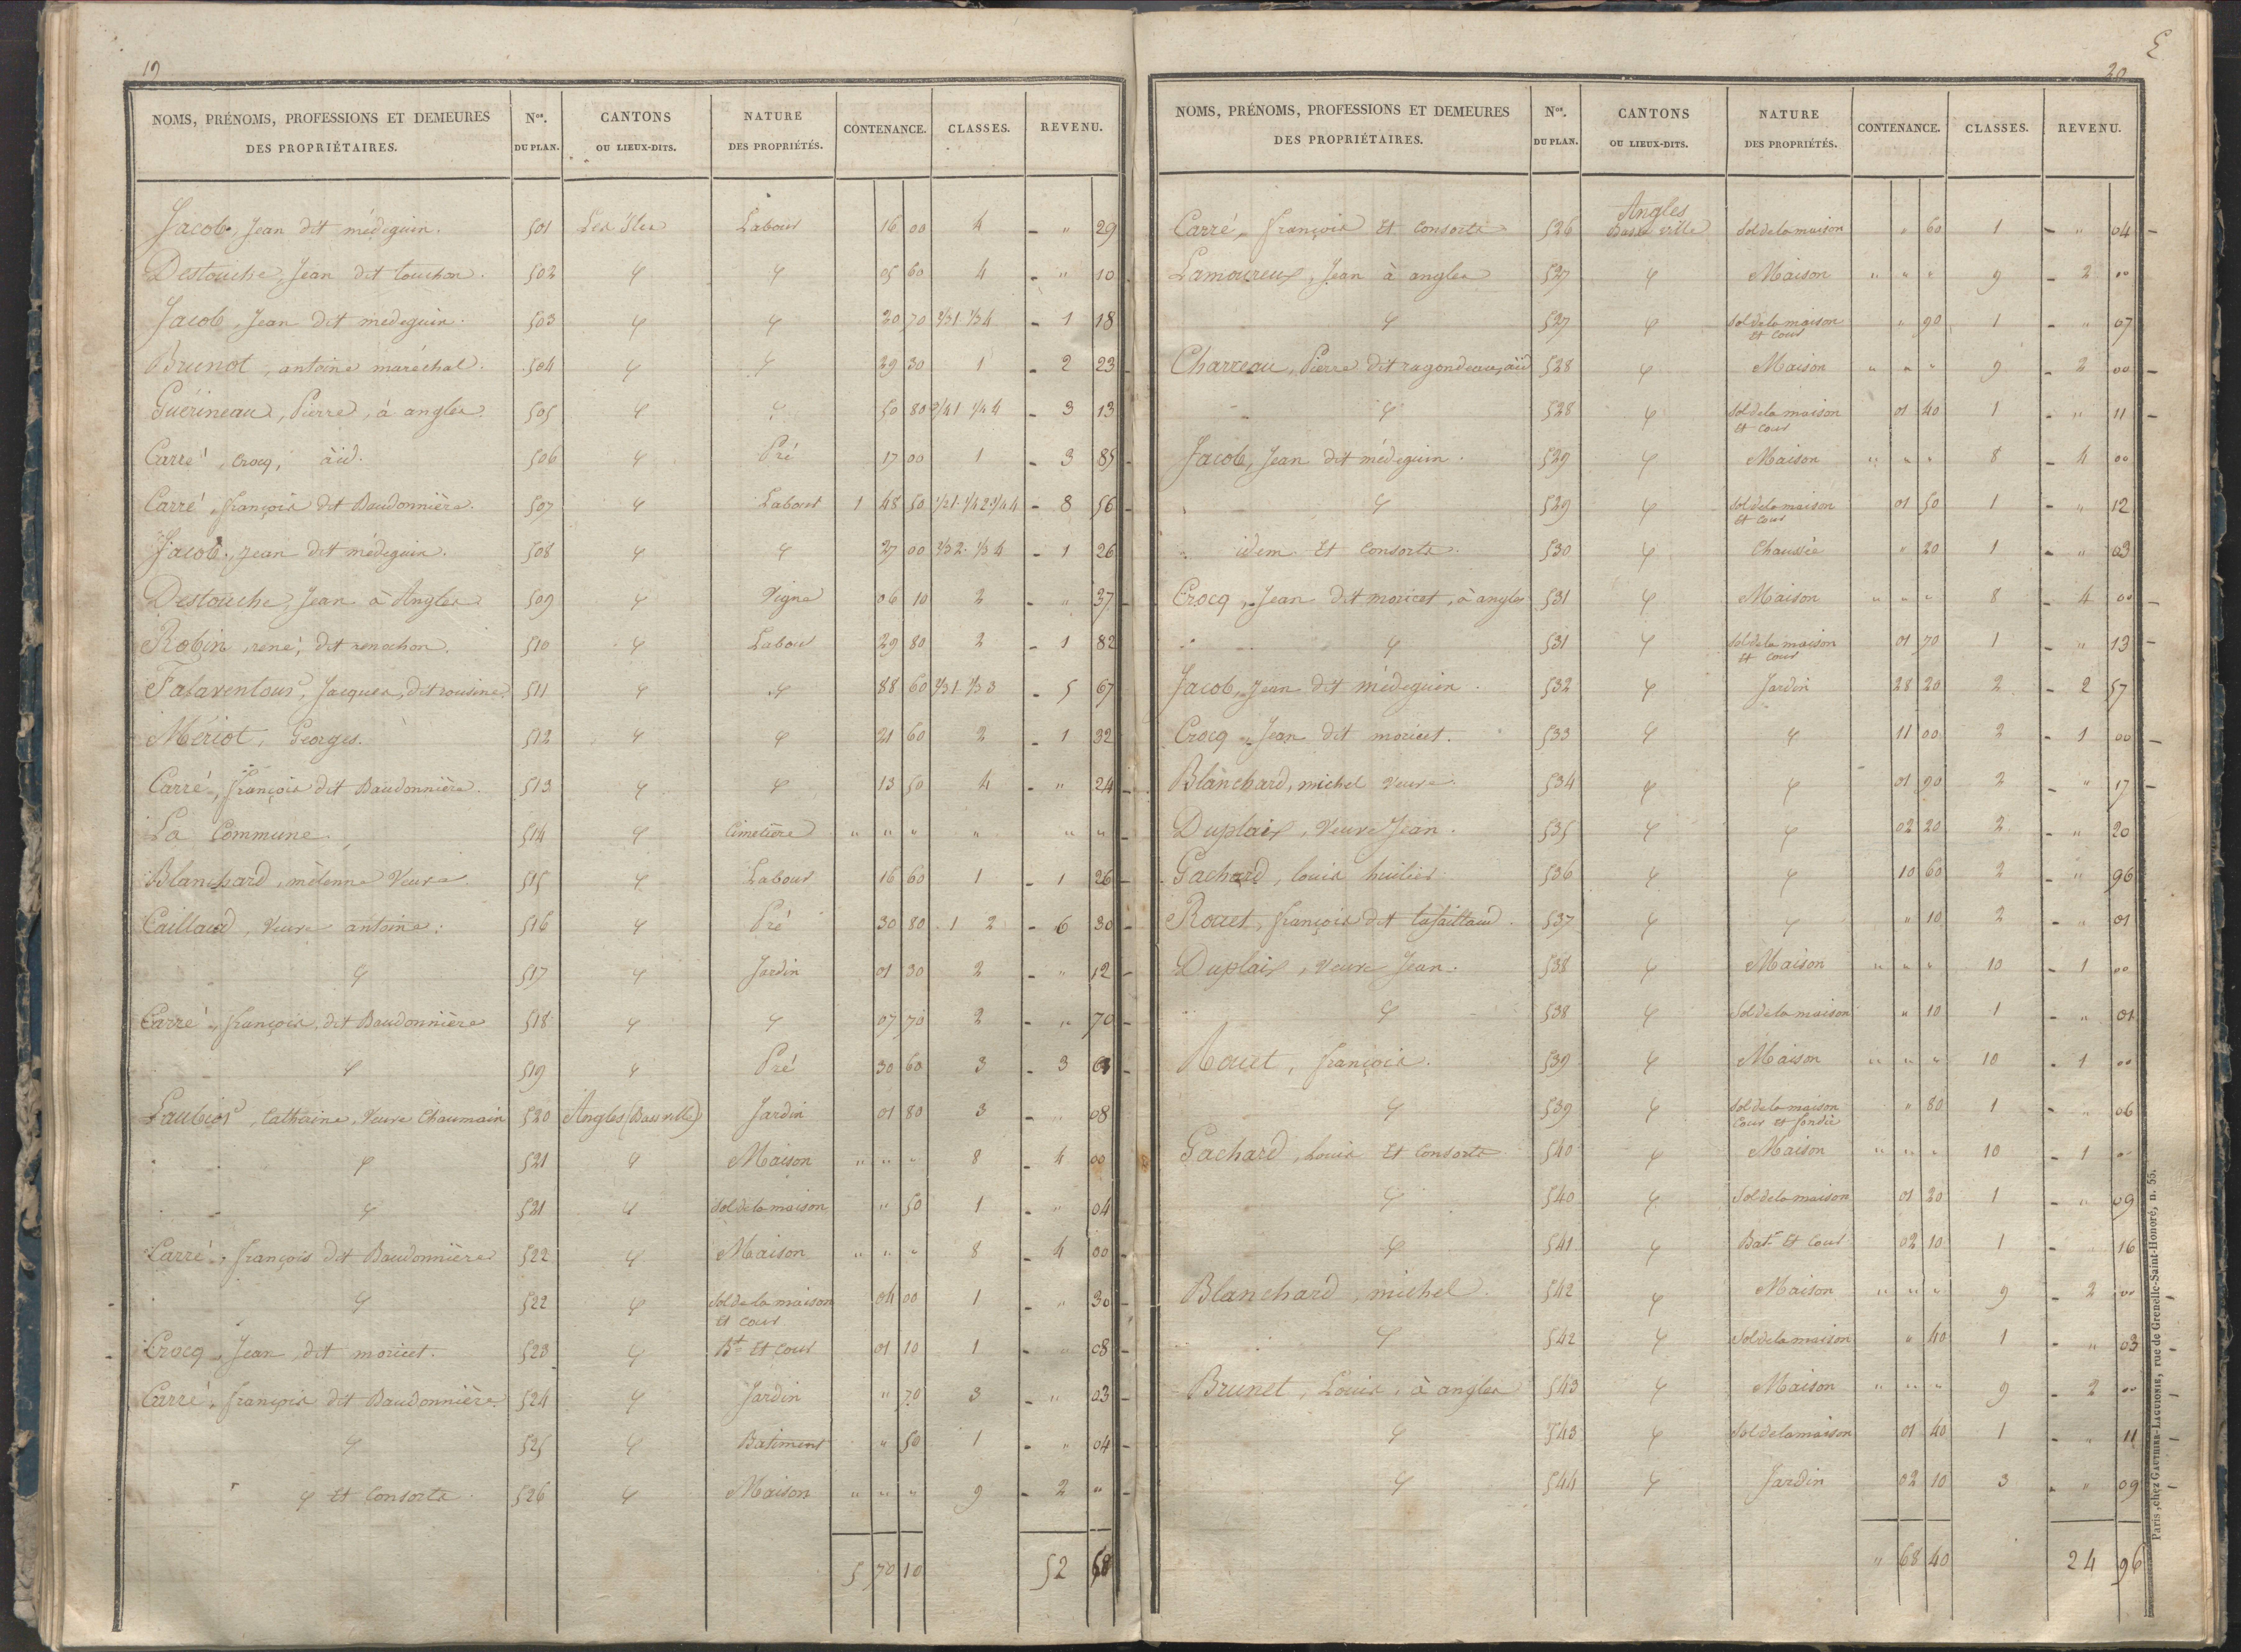 19
NOMS, PRÉNOMS, PROFESSIONS ET DEMEURES DES PROPRIÉTAIRES. Nos. DU PLAN. CANTONS OU LIEUX-DITS. NATURE DES PROPRIÉTÉS. CONTENANCE. CLASSES. REVENU.
Jacob, Jean dit médeguin. 501 Les Iles Labour 16 00 4 - " 29
Destouche, Jean dit touchon. 502 φ φ 05 60 4 - " 10
Jacob, Jean dit médeguin. 503 φ φ 20 70 2/3 1 1/3 4 - 1 18
Brunot, antoine maréchal. 504 φ φ 29 30 1 - 2 23
Guérineau, Pierre, à angles. 505 φ φ 50 80 3/4 1 1/4 4 - 3 13
Carré, Crocq, àid. 506 φ Pré 17 00 1 - 3 85
Carré, françois dit Baudonnière. 507 φ Labour 1 48 50 1/2 1 1/4 2 1/4 4 - 8 56
Jacob, Jean dit médeguin. 508 φ φ 27 00 2/3 2 1/3 4 - 1 26
Destouche, Jean à Angles 509 φ Vigne 06 10 2 - " 37
Robin, rené, dit renochon. 510 φ Labour 29 80 2 - 1 82
Jacques, dit 511 φ φ 88 60 2/3 1 1/3 3 - 5 67
Mériot, Georges. 512 φ φ 21 60 2 - 1 32
Carré, françois dit Baudonnière. 513 φ φ 13 50 4 - " 24
La Commune. 514 φ Cimetière " " " " " "
Blanchard, mélenne Veuve 515 φ Labour 16 60 1 - 1 26
Caillaud, Veuve antoine. 516 φ Pré 30 80 1 2 - 6 30
φ 517 φ Jardin 01 30 2 - " 12
Carré, françois, dit Baudonnière 518 φ φ 07 70 2 - " 70
φ 519 φ Pré 30 60 3 - 3
Laubier, Cathrine, Veuve Chaumain 520 Angles (Basse ville) Jardin 01 80 3 - " 08
φ 521 φ Maison " " " 8 - 4 00
φ 521 φ Sol de la maison " 50 1 - " 04
Carré, françois dit Baudonnière 522 φ Maison " " " 8 - 4 00
φ 522 φ Sol de la maison et cour 04 00 1 - " 30
Crocq, Jean, dit moricet. 523 φ Bt et cour 01 10 1 - " 08
Carré, françois dit Baudonnière. 524 φ Jardin " 70 3 - " 03
φ 525 φ Batiment " 50 1 - " 04
φ et Consorts 526 φ Maison " " " 9 - 2 "
5 70 10 52 68
E
20
NOMS, PRÉNOMS, PROFESSIONS ET DEMEURES DES PROPRIÉTAIRES. Nos. DU PLAN. CANTONS OU LIEUX-DITS. NATURE DES PROPRIÉTÉS. CONTENANCE. CLASSES. REVENU.
Carré, françois et consorts 526 Angles Basse ville Sol de la maison " 60 1 - " 04
Lamoureux, Jean à angles 527 φ Maison " " " 9 - 2 "
φ 527 φ Sol de la maison et cour " 90 1 - " 07
Charreau, Pierre dit ragondeau, àid 528 φ Maison " " " 9 - 2 00
φ 528 φ Sol de la maison et cour 01 40 1 - " 11
Jacob, Jean dit médeguin. 529 φ Maison " " " 8 - 4 00
φ 529 φ Sol de la maison et cour 01 50 1 - " 12
idem et Consorts. 530 φ Chaussée " 20 1 - " 03
Crocq, Jean dit moricet, à angles 531 φ Maison " " " 8 - 4 00
φ 531 φ Sol de la maison et cour 01 70 1 - " 13
Jacob, Jean dit médeguin. 532 φ Jardin 28 20 2 - 2 57
Crocq, Jean dit moricet. 533 φ φ 11 00 2 - 1 00
Blanchard, michel Veuve. 534 φ φ 01 90 2 - " 17
Duplaix, Veuve Jean. 535 φ φ 02 20 2 - " 20
Gachard, louis huilier 536 φ φ 10 60 2 - " 96
Rouet, françois dit 537 φ φ " 10 2 - " 01
Duplaix, Veuve Jean. 538 φ Maison " " " 10 - 1 "
φ 538 φ Sol de la maison " 10 1 - " 01
Rouet, françois. 539 φ Maison " " " 10 - 1 "
φ 539 φ Sol de la maison Cour et fondis " 80 1 - " 06
Gachard, Louis et Consorts 540 φ Maison " " " 10 - 1 "
φ 540 φ Sol de la maison 01 20 1 - " 09
φ 541 φ Bat. et Cour 02 10 1 - " 16
Blanchard, michel. 542 φ Maison " " " 9 - 2 "
φ 542 φ Sol de la maison " 40 1 - " 03
Brunet, Louis, à angles 543 φ Maison " " " 9 - 2 "
φ 543 φ Sol de la maison 01 40 1 - " 11
φ 544 φ Jardin 02 10 3 - " 09
" 68 40 24 96
Paris, chez GAUTHIER-LAGUIONIE, rue de Grenelle-Saint-Honoré, n. 55.